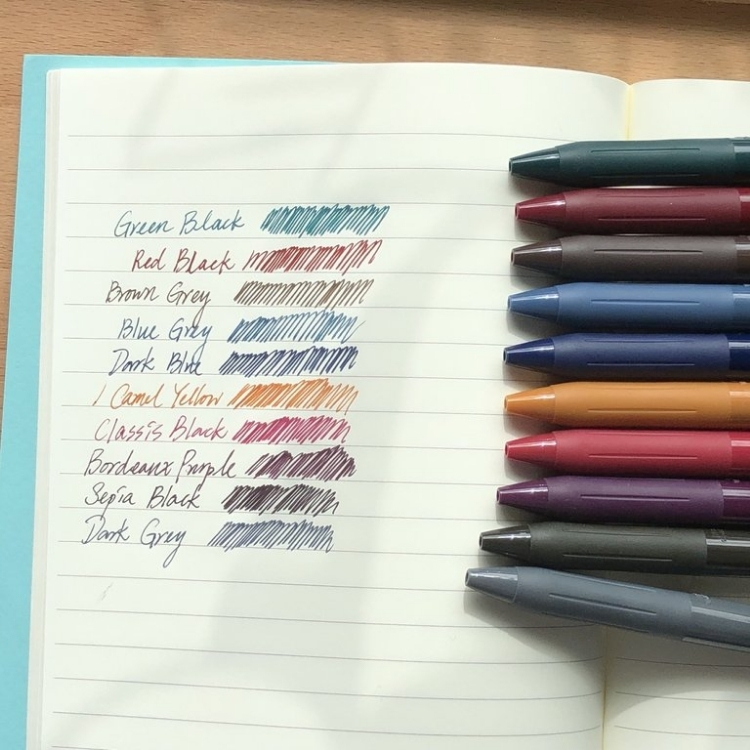 Green Black
Red Black
Brown Grey
Blue Grey
Dark Blue
Camel Yellow
Classis Black
Bordeaux Purple
Sepia Black
Dark Grey